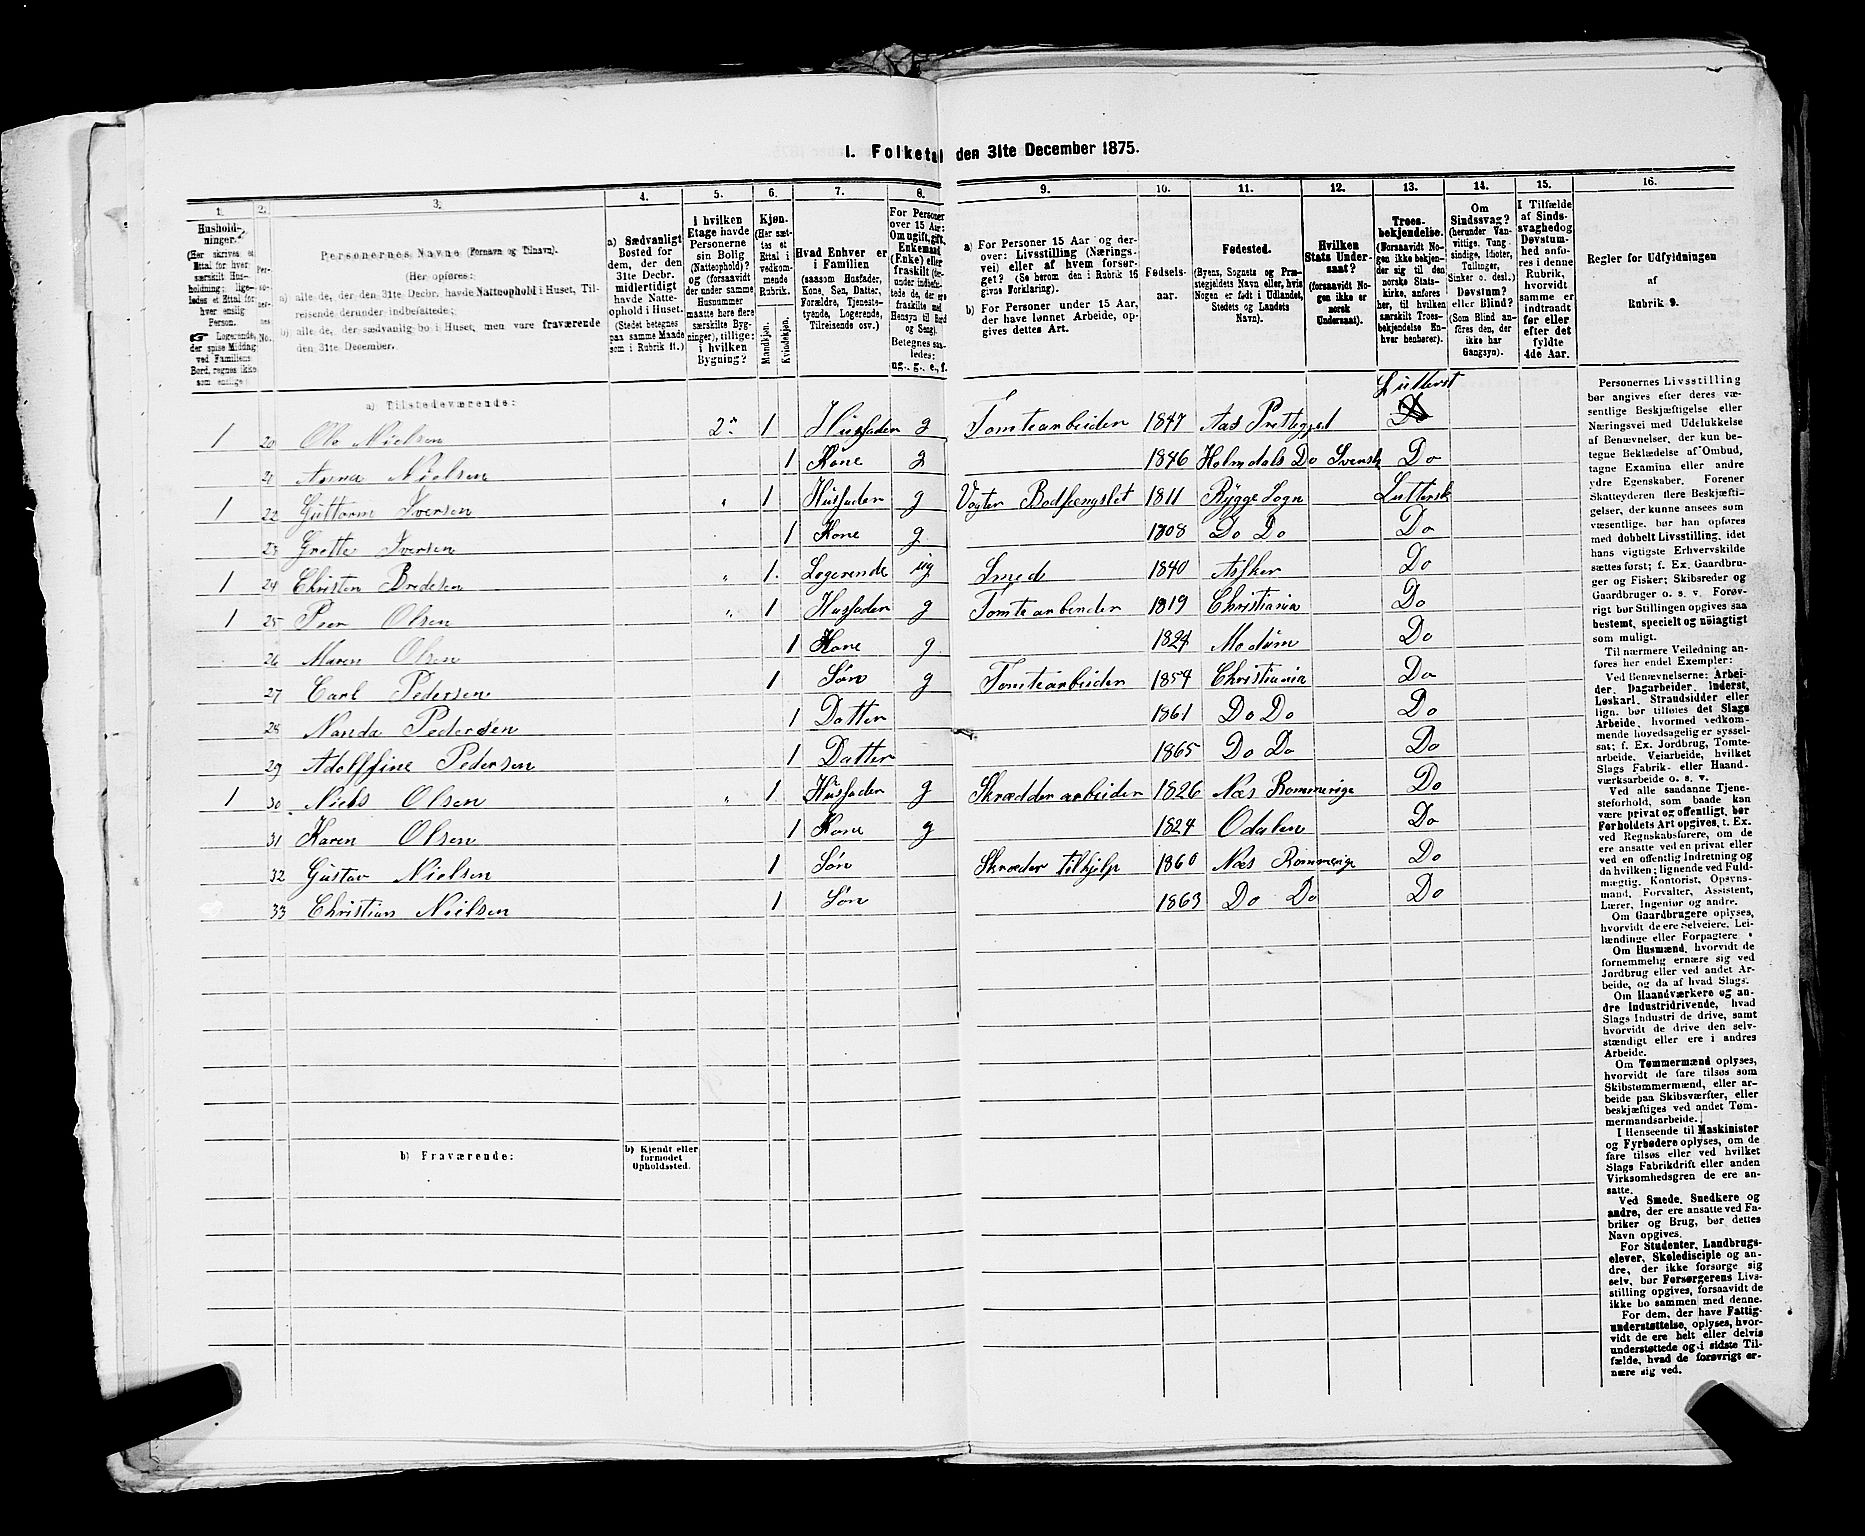 I. Folketal den 31te December 1875.
1. 2. 3. 4. 5. 6. 7. 8. 9. 10. 11. 12. 13. 14. 15. 16.
Hushold-
ninger.
(Her skrives et
Ettal for hver
særskilt Hus-
holdning; lige-
ledes et Ettal for
hver enslig
Person.
☛ Logerende,
der spise Middag
ved Familiens
Bord, regnes ikke
som enslige.)
Per-
so-
ner-
nes
No.
Personernes Navne (Fornavn og Tilnavn).
(Her opføres:
a) alle de, der den 31te Decbr. havde Natteophold i Huset, Til-
reisende derunder indbefattede;
b) alle de, der sædvanlig bo i Huset, men vare fraværende
den 31te December.
a) Sædvanligt
Bosted for
dem, der den
31te Decbr.
midlertidigt
havde Natte-
ophold i Huset.
(Stedet betegnes
paa samme Maade
som i Rubrik 11.)
I hvilken
Etage havde
Personerne
sin Bolig
(Natteophold)?
og (forsaavidt
der under samme
Husnummer
maatte høre flere
særskilte Byg-
ninger), tillige:
i hvilken
Bygning?
Kjøn.
(Her sæt-
tes et
Ettal i
vedkom-
mende
Rubrik.)
Mandkjøn.
Kvindekjøn.
Hvad Enhver er
i Familien
(saasom Husfader,
Kone, Søn, Datter,
Forældre, Tjeneste-
tyende, Logerende,
Tilreisende osv.)
For Personer
over 15 Aar:
Om ugift, gift,
Enkemand
(Enke) eller
fraskilt (her-
under indbefat-
tede de, der ere
fraskilte med
Hensyn til Bord
og Seng).
Betegnes saa-
ledes:
ug., g., e., f.
a) For Personer 15 Aar og der-
over: Livsstilling (Nærings-
vei) eller af hvem forsør-
get? (Se herom den i Rubrik 16
givne Forklaring).
b) For Personer under 15 Aar,
der have lønnet Arbeide, op-
gives dettes Art.
Fødsels-
aar.
Fødested.
(Byens, Sognets og Præ-
stegjeldets Navn eller, hvis
Nogen er født i Udlandet,
Stedets og Landets
Navn).
Hvilken
Stats Under-
saat?
(forsaavidt No-
gen ikke er
norsk
Undersaat).
Troes-
bekjendelse.
(Forsaavidt No-
gen ikke bekjen-
der sig til den
norske Stats-
kirke, anføres
her, til hvilken
særskilt Troes-
bekjendelse En-
hver henhører).
Om
Sindssvag?
(herunder Van-
vittige, Tung-
sindige, Idioter,
Tullinger,
Sinker o. desl.)
Døvstum?
eller Blind?
(Som Blind an-
føres den, der
ikke har
Gangsyn).
I Tilfælde
af Sinds-
svaghed og
Døvstum-
hed anfø-
res i denne
Rubrik,
hvorvidt
samme er
indtraadt
før eller
efter det
fyldte
4de Aar.
Regler for Udfyldningen
af
Rubrik 9.
a) Tilstedeværende:
Luttersk
1 20 Ole Nielsen 2n 1 Husfader g Tomtearbeider 1847 Aas Prestegjel Do
21 Anna Nielsen 1 Kone g 1846 Holmdals Do Svensk Do
1 22 Guttorm Iversen " 1 Husfader g Vogter Bodsfængslet 1811 Rygge Sogn Luttersk
23 Grette Iversen 1 Kone g 1808 Do Do Do
1 24 Christen Bredesen " 1. Logerende ug Smed 1840 Asker Do
1 25 Peer Olsen " 1 Husfader g Tomtearbeider 1819 Christiania Do
26 Maren Olsen 1 Kone g 1824 Modum Do
27 Carl Pedersen 1 Søn g Tomtearbeider 1854 Christiania Do
28 Nanda Pedersen 1 Datter 1861 Do Do Do
29 Adolffine Pedersen 1 Datter 1865 Do Do Do
1 30 Niels Olsen " 1 Husfader g Skrædder arbeider 1826 Næs Rommerige Do
31 Karen Olsen 1 Kone g 1824 Odalen Do
32 Gustav Nielsen 1 Søn Skræder tilhjelp 1860 Næs Rommerige Do
33 Christian Nielsen 1 Søn 1863 Do Do Do
b) Fraværende:
b) Kjendt eller
formodet
Opholdssted.
Personernes Livsstilling
bør angives efter deres væ-
sentlige Beskjæftigelse eller
Næringsvei med Udelukkelse
af Benævnelser, der kun be-
tegne Beklædelse af Ombud,
tagne Examina eller andre
ydre Egenskaber. Forener
Skatteyderen flere Beskjæfti-
gelser, der kunne ansees som
væsentlige, bør han opføres
med dobbelt Livsstilling, idet
hans vigtigste Erhvervskilde
sættes først; f. Ex. Gaardbru-
ger og Fisker; Skibsreder og
Gaardbruger o. s. v. Forøv-
rigt bør Stillingen opgives saa
bestemt, specielt og nøiagtigt
som muligt.
Til nærmere Veiledning an-
føres her endel Exempler:
Ved Benævnelserne: Arbei-
der, Dagarbeider, Inderst,
Løskarl, Strandsidder eller
lign. bør tilføies det Slags
Arbeide, hvormed vedkom-
mende hovedsagelig er syssel-
sat; f. Ex. Jordbrug, Tomte-
arbeide, Veiarbeide, hvilket
Slags Fabrik- eller Haand-
værksarbeide o. s. v.
Ved alle saadanne Tjene-
steforhold, som baade kan
være privat og offentligt, bør
Forholdets Art opgives, t. Ex.
ved Regnskabsførere, om de
ere ansatte ved en privat eller
ved en offentlig Indretning og
da hvilken; lignende ved Fuld-
mægtig, Kontorist, Opsyns-
mand, Forvalter, Assistent,
Lærer, Ingeniør og andre.
Om Gaardbrugere oplyses,
hvorvidt de ere Selveiere, Lei-
lændinge eller Forpagtere.
Om Husmænd, hvorvidt de
fornemmelig ernære sig ved
Jordbrug eller ved andet Ar-
beide, og da af hvad Slags.
Om Haandværkere og an-
dre Industridrivende, hvad
Slags Industri de drive, samt
hvorvidt de drive den selv-
stændigt eller ere i andres
Arbeide.
Om Tømmermænd oplyses,
hvorvidt de fare tilsøs som
Skibstømmermænd, eller ar-
beide paa Skibsværfter, eller
beskjæftiges ved andet Tøm-
mermandsarbeide.
I Henseende til Maskinister
og Fyrbødere oplyses, om de
fare tilsøs eller ved hvilket
Slags Fabrikdrift eller anden
Virksomhedsgren de ere an-
satte.
Ved Smede, Snedkere og
andre, der ere ansatte ved Fa-
briker og Brug, bør dettes
Navn opgives.
For Studenter, Landbrugs-
elever, Skoledisciple og an-
dre, der ikke forsørge sig
selv, bør Forsørgerens Livs-
stilling opgives, forsaavidt de
ikke bo sammen med denne.
For dem, der have Fattig-
understøttelse, oplyses, hvor-
vidt de ere helt eller delvis
understøttede og i sidste Til-
fælde, hvad de forøvrigt er-
nære sig ved.